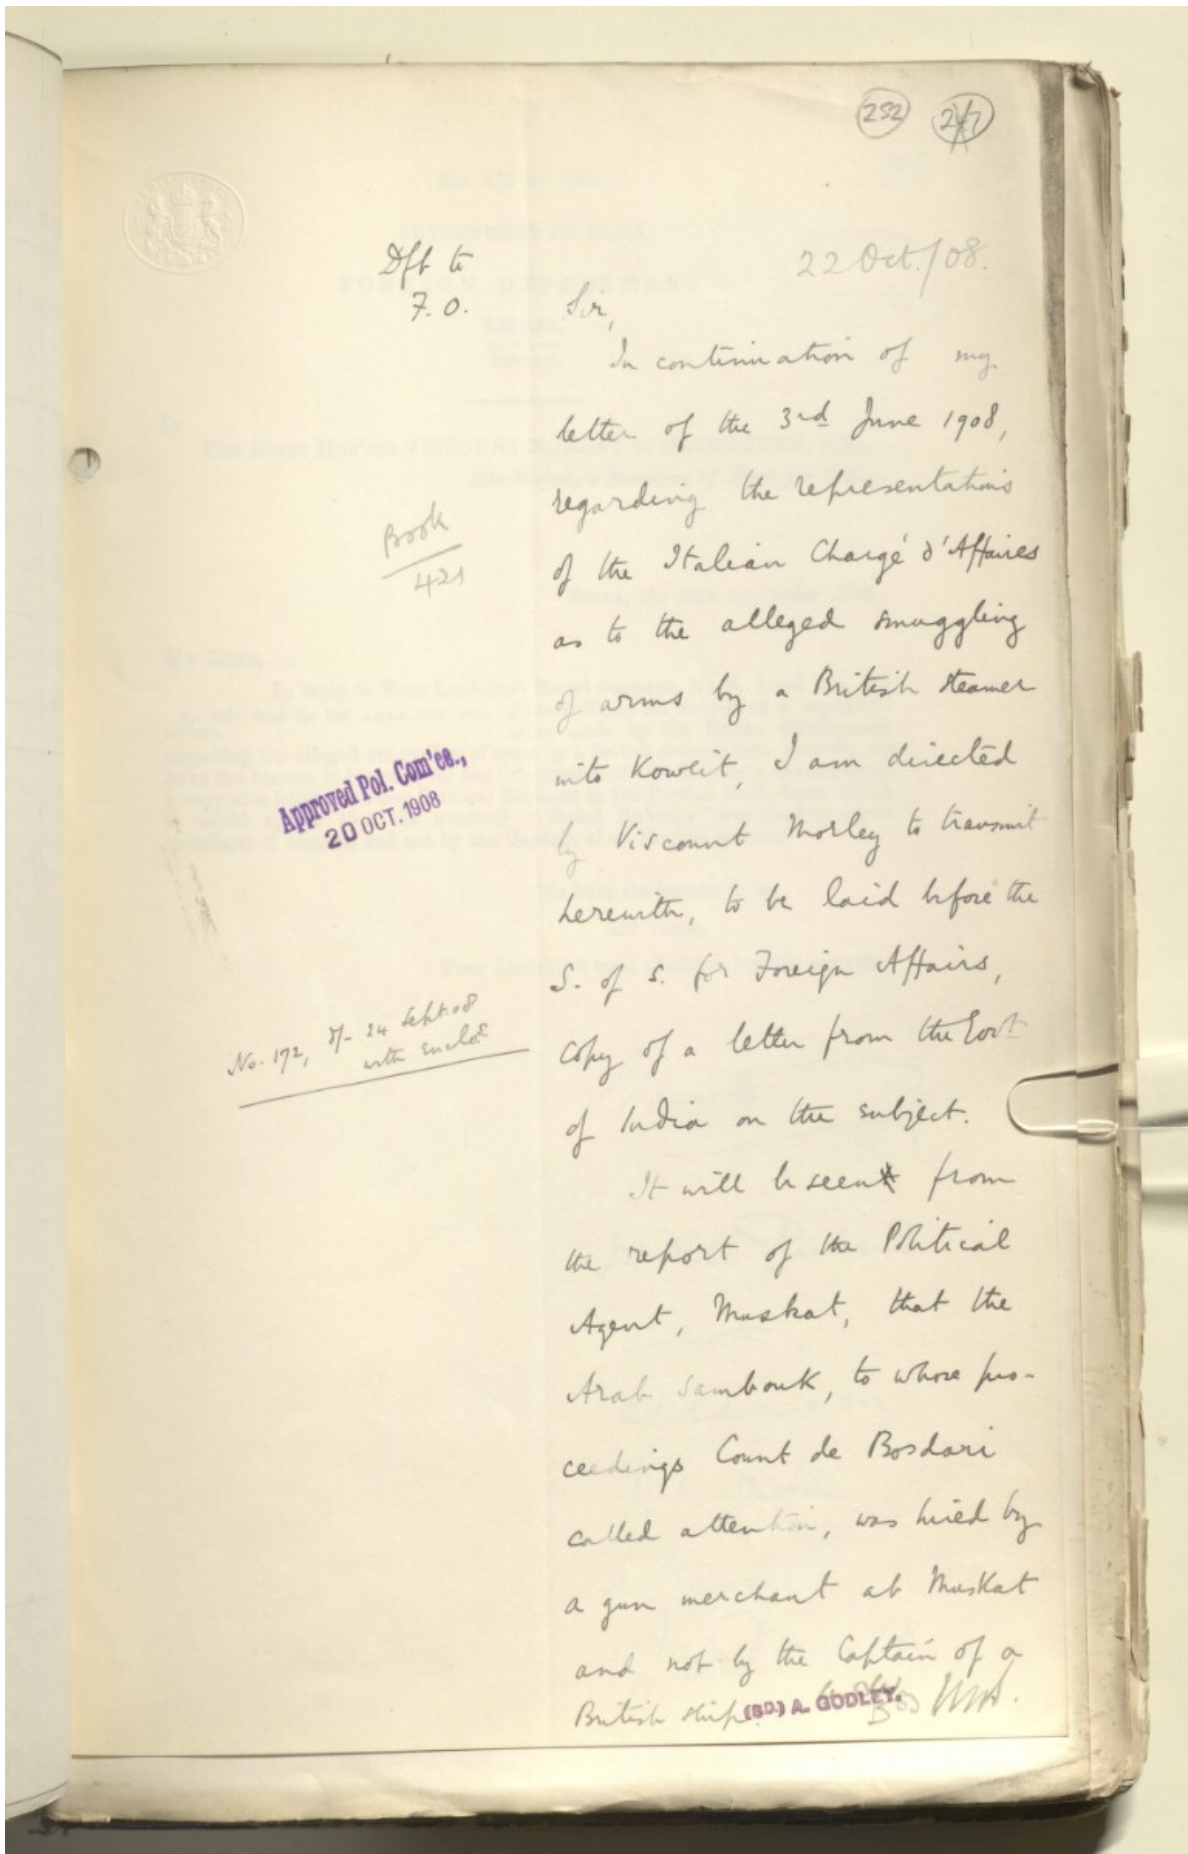 252 247
Dft to
F. O.
22 Oct./08.
Sir,
In continuation of my
letter of the 3rd June 1908,
regarding the representations
of the Italian Chargé d'Affaires
as to the alleged smuggling
of arms by a British steamer
into Koweit, I am directed
by Viscount Morley to transmit
herewith, to be laid before the
S. of S. for Foreign Affairs,
copy of a letter from the Govt
of India on the subject.
It will be seen from
the report of the Political
Agent, Muskat, that the
Arab Sambouk, to whose pro-
ceedings Count de Bosdari
called attention, was hired by
a gun merchant at Muskat
and not by the Captain of a
British ship.
(SD.) A. GODLEY.
Book
421
Approved Pol. Com'ee.,
20 OCT. 1908
No. 172, d/- 24 Sept. 08
with enclos.